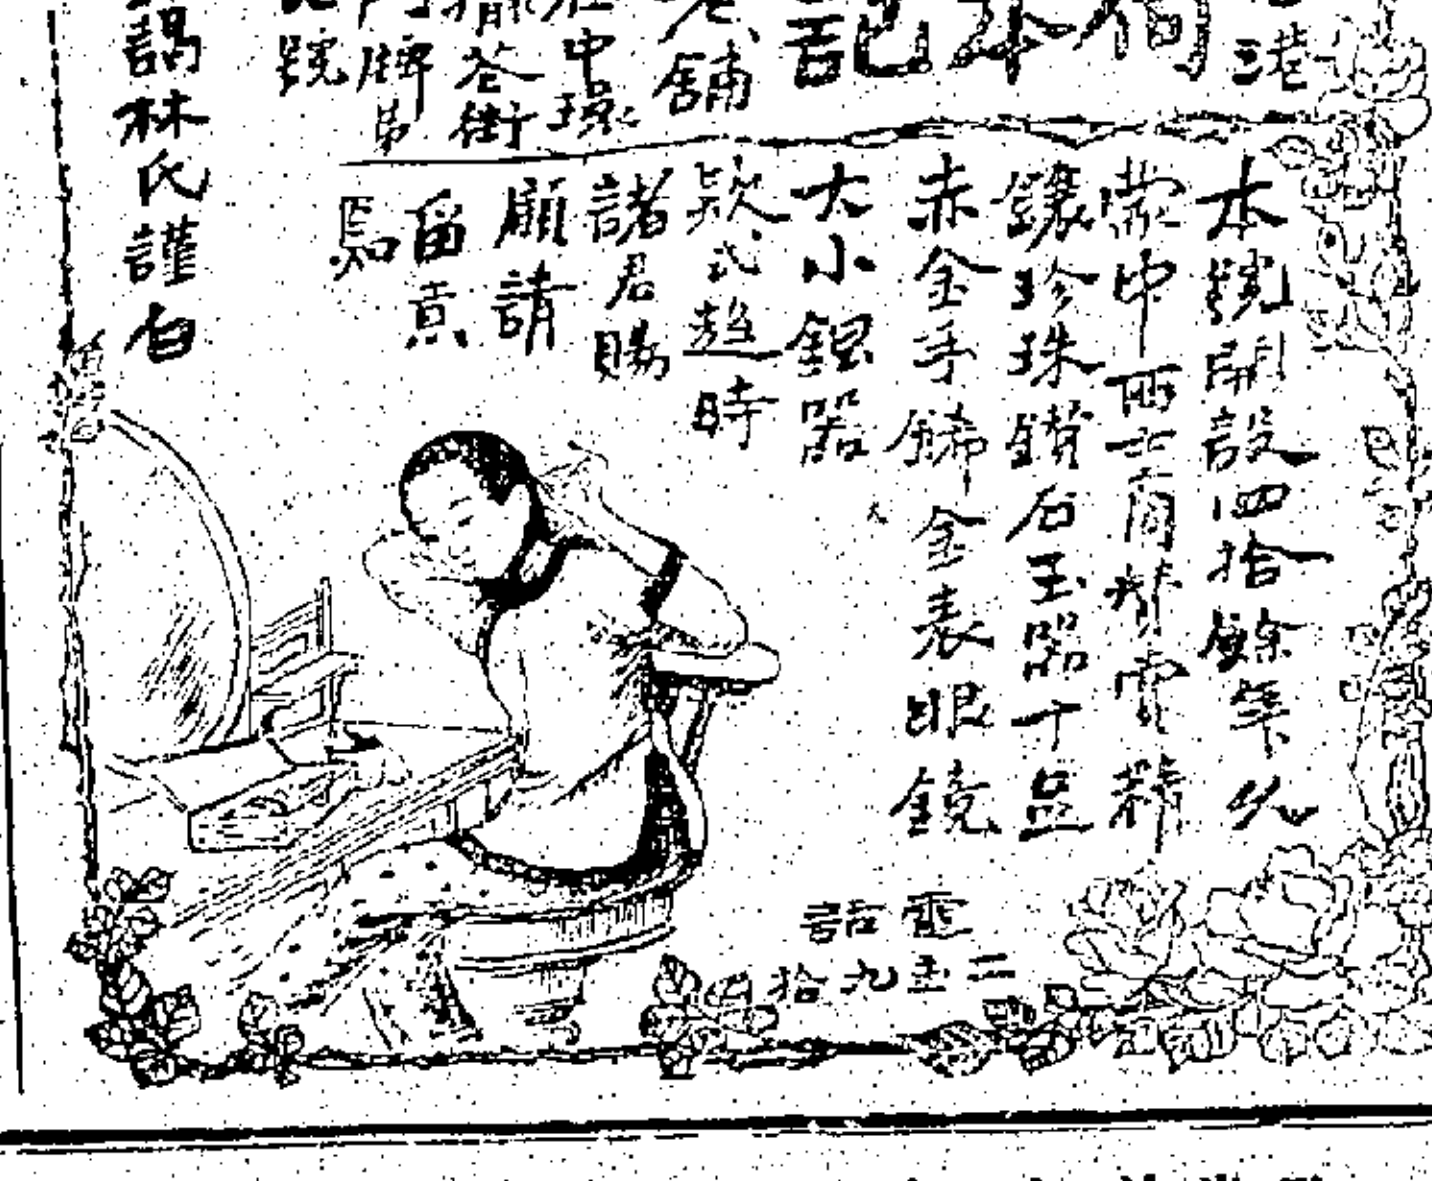 港三
本記
老舖
中環
擺花街
門牌第
號
本號開設四拾餘年久
蒙中西士商賛賞釋
鑲珍珠鑽石玉器十益
赤金手鈪金表眼鏡
大小銀器
欵式趋時
諸君賜
顧請
留意
焉
電話
二五九拾
林氏謹白